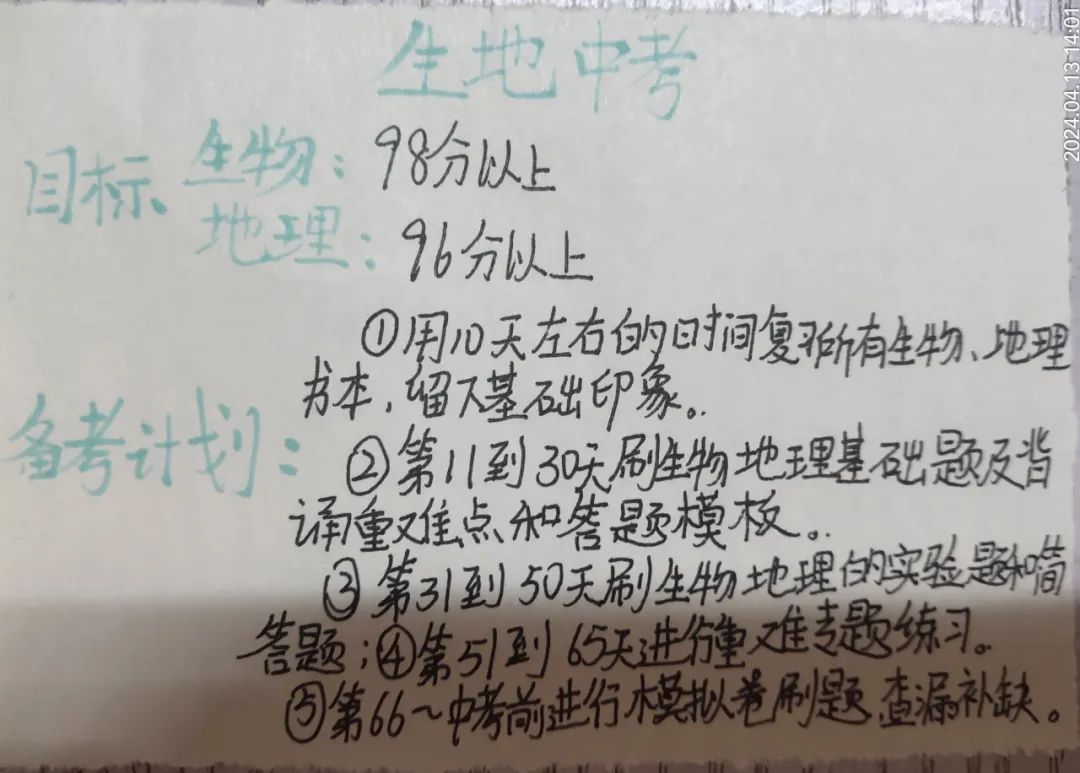 生地中考
目标、生物：98分以上
地理：96分以上
①用10天左右的时间复习所有生物、地理
书本，留下基础印象。
备考计划：
②第11到30天刷生物地理基础题及背
诵重难点和答题模板。
③第31到50天刷生物地理的实验题和简
答题；④第51到65天进行重难专题练习。
⑤第66～中考前进行模拟卷刷题，查漏补缺。
2024.04.13 14:01